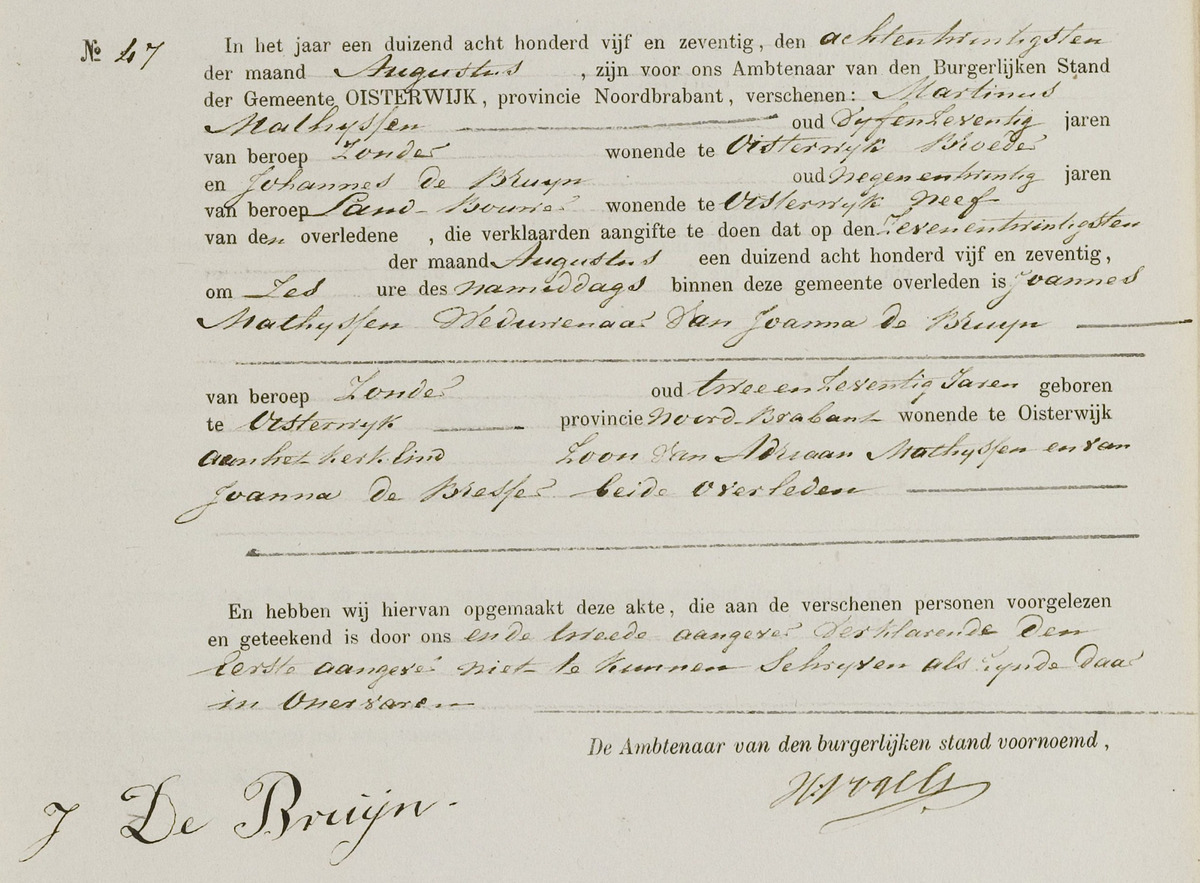 № 47 In het jaar een duizend acht honderd vijf en zeventig, den achtentwintigsten
der maand Augustus , zijn voor ons Ambtenaar van den Burgerlijken Stand
der Gemeente OISTERWIJK, provincie Noordbrabant, verschenen: Martinus
Mathyssen oud Vyfenzeventig jaren
van beroep Zonder wonende te Oisterwyk Broeder
en Johannes de Bruyn oud Negenentwintig jaren
van beroep Land-Bouwer wonende te Oisterwyk Neef
van den overledene , die verklaarden aangifte te doen dat op den Zevenentwintigsten
der maand Augustus een duizend acht honderd vijf en zeventig,
om Zes ure des nameddags binnen deze gemeente overleden is Joannes
Mathyssen Weduwenaar Van Joanna de Bruyn
van beroep Zonder oud tweeenzeventig Jaren geboren
te Oisterwyk provincie Noord-Brabant wonende te Oisterwijk
aan het kerkEind Zoon Van Adriaan Mathyssen en van
Joanna de Bresser beide Overleden
En hebben wij hiervan opgemaakt deze akte, die aan de verschenen personen voorgelezen
en geteekend is door ons en de tweede aangever Verklarende den
Eerste aangever niet te kunnen Schryven als zynde daar
in Onervaren
De Ambtenaar van den burgerlijken stand voornoemd,
J De Bruijn.